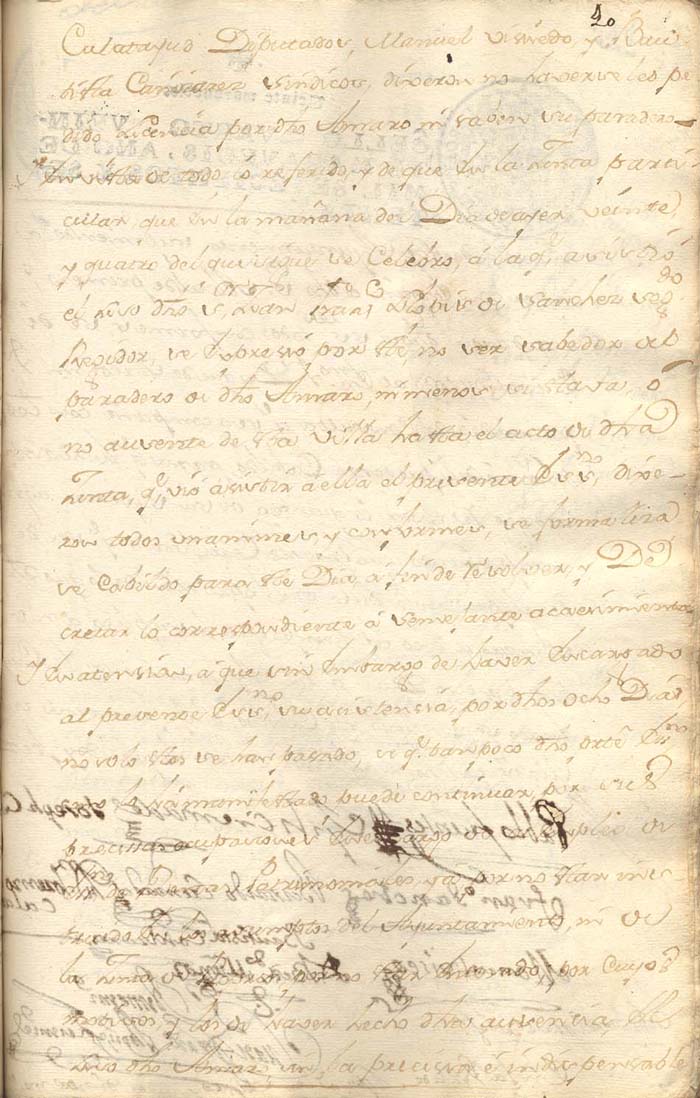 20
Calatayud Diputados, Manuel Oviedo, y Bau
tista Cañizarez Sindicos, dixeron no haverseles pe
dido licencia por dho Amaro, ni saven su paradero
En vista de todo lo referido, y de que en la Junta parti
cular, que en la mañana del Dia de ayer veinte,
y quatro del que sigue se Celebro, á la q.e asistió
el suso dho Juan Sanchez seg.do
Regidor, se expresó por este, no ser sabedor del
paradero de dho Amaro, ni menos si estava, ó
no ausente de esta Villa hasta el acto de dha
Junta, q.e vió asistir á ella el presente Ess.no, dixe-
ron todos unanimes, y conformes, se formalizara
se Cabildo para este Dia á fin de resolver, y De
cretar lo correspondiente á semejante acaecimiento
Y en atension, á que sin embargo de haver encargado
al presente Ess.no, su asistensia, por dhos ocho Dias,
no solo estos se han pasado, si q.e tampoco dho
puede continuar, por sus
precisas ocupaciones en el cargo de su empleo de
Rentas Patrimoniales, ya por no estar ins
truido en los asumptos del Ayuntamiento, ni de
la Junta de no estar enterado, por cuyos
motivos, y los de haver hecho dha ausencia el
suso dho Amaro, sin la precisa é indispensable